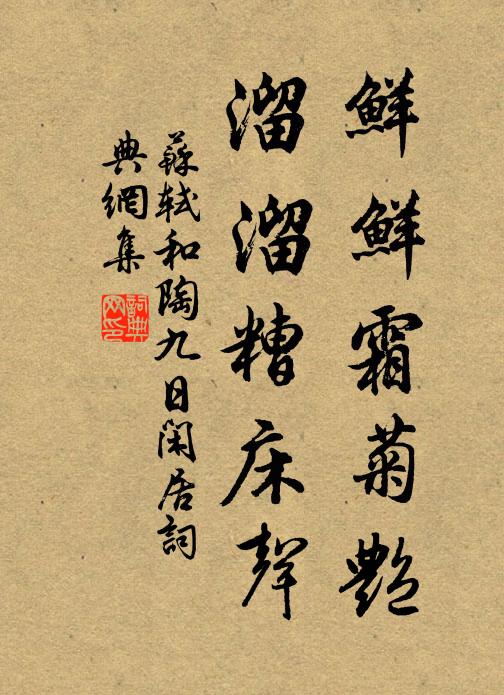 鮮鮮霜菊艷
溜溜糟床聲
蘇軾和陶九日閑居詞
典網集
詞典網印